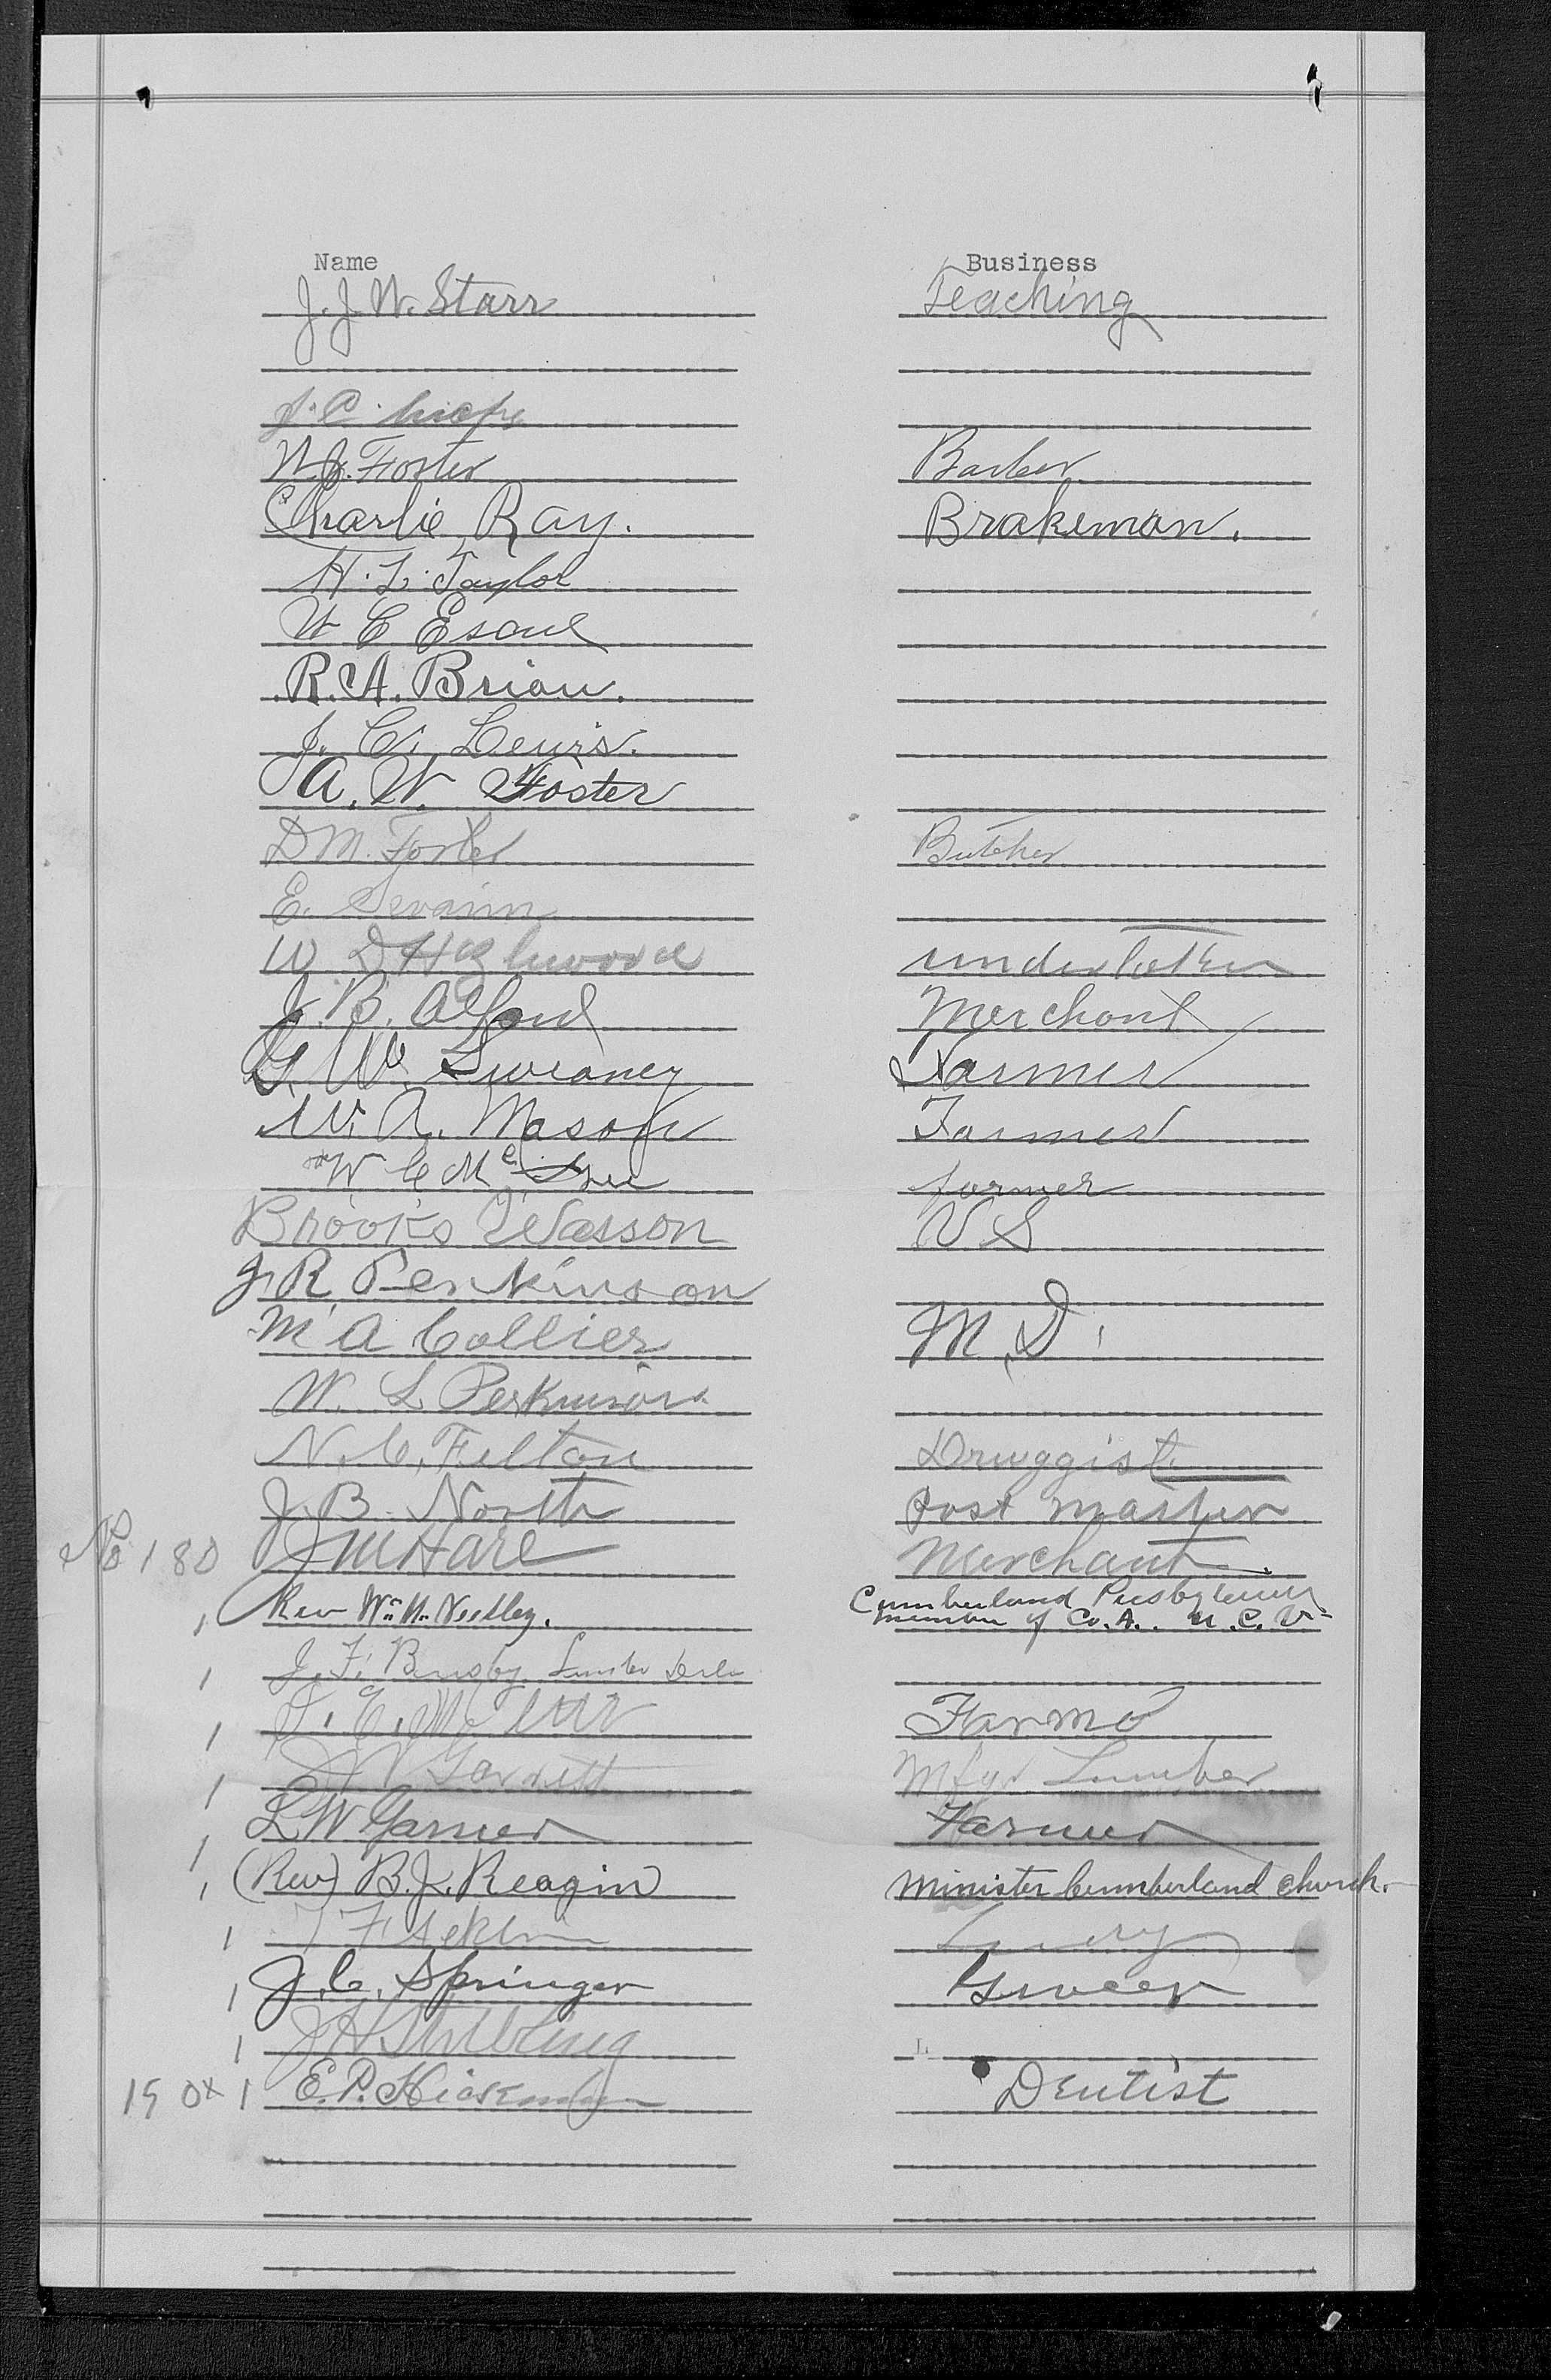 Name Business
J. J. W. Starr Teaching
J. C.
W. J. Foster Barber
Charlie Ray. Brakeman.
H. L. Taylor
W C
R. A. Brian.
J. C. Lewis.
A. W. Foster
D M. Foster Butcher
E. Swaim
W D undertaker
J. B. Alford Merchant
G. W. Sweaney Farmer
W. A. Mason Farmer
W C Mc farmer
Brooks Wasson V S
J R Perkinson
M A Collier M. D.
W. L. Perkinson
N. C. Felton Druggist
J. B. North Post master
No 180 J M Hare Merchant.
1 Rev Wm. H. Neeley. Cumberland Presbyterian
member of Co. A. U. C. V.
1 J. F. Lumber Dealer
1 E. Mc Farmer
1 J V Garrett Mfgr Lumber
1 L W Garner Farmer
1 (Rev) B. J. Reagin Minister Cumberland Church.
1 T F
1 J. C. Springer Grocer
1 J H Stribling
190 x 1 E. P. Hickman Dentist